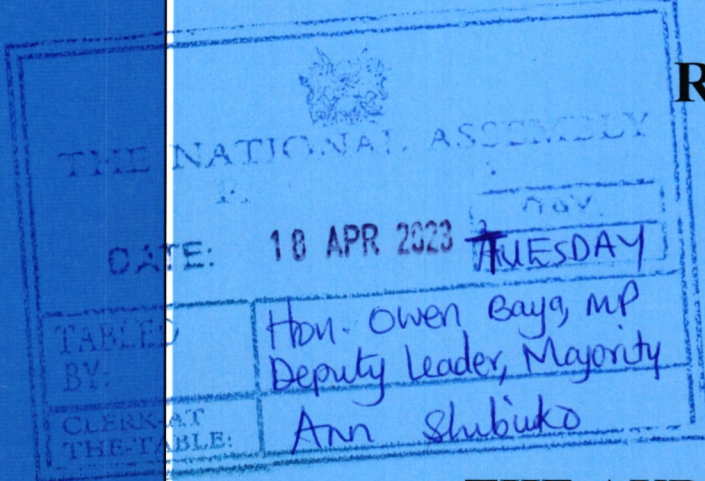 R
THE NATIONAL ASSEMBLY
DAY
DATE: 18 APR 2023 TUESDAY
TABLED BY: Hon. Owen Baya, MP
Deputy Leader, Majority
CLERK-AT THE-TABLE: Ann Shibuko